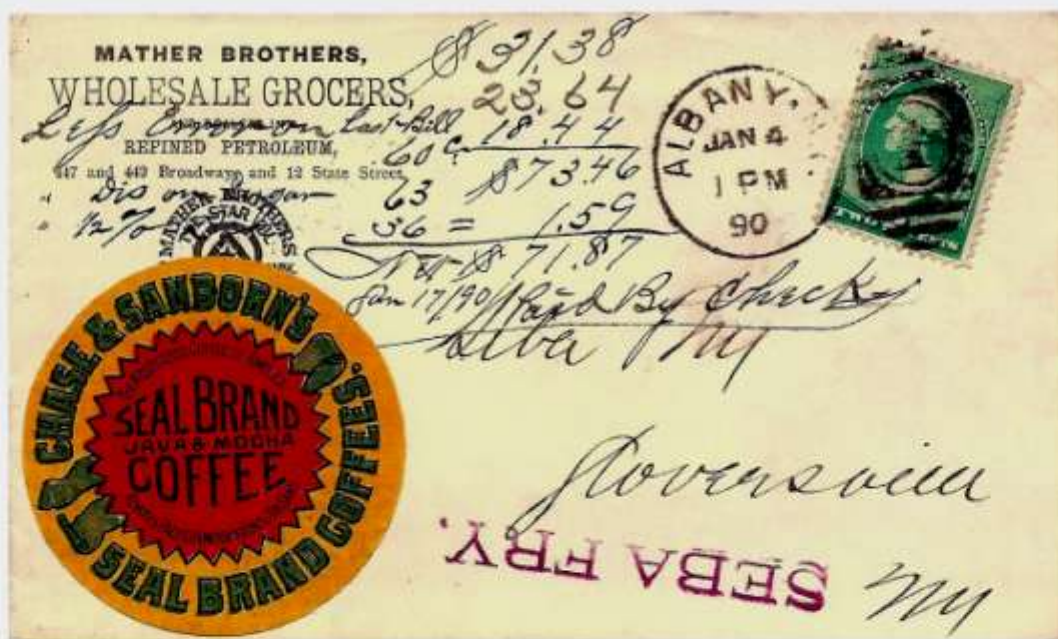 MATHER BROTHERS,
WHOLESALE GROCERS,
REFINED PETROLEUM,
447 and 449 Broadway, and 12 State Street,
MATHER BROTHERS
STAR
$31.38
23.64
Less Error on Last Bill 18.44
60 c $73.46
" Dis on Sugar 63
" 1/2 % 36 = 1.59
Net $71.87
Jan 17/90 Paid By Check
ALBANY, N.Y.
JAN 4
1 PM
90
Seba Fry
Gloversville
NY
SEBA FRY.
CHASE & SANBORN'S
SEAL BRAND COFFEES.
SEAL BRAND
JAVA & MOCHA
COFFEE